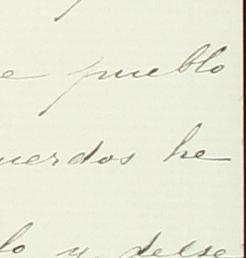 e pueblo
uerdos he
lo y desse